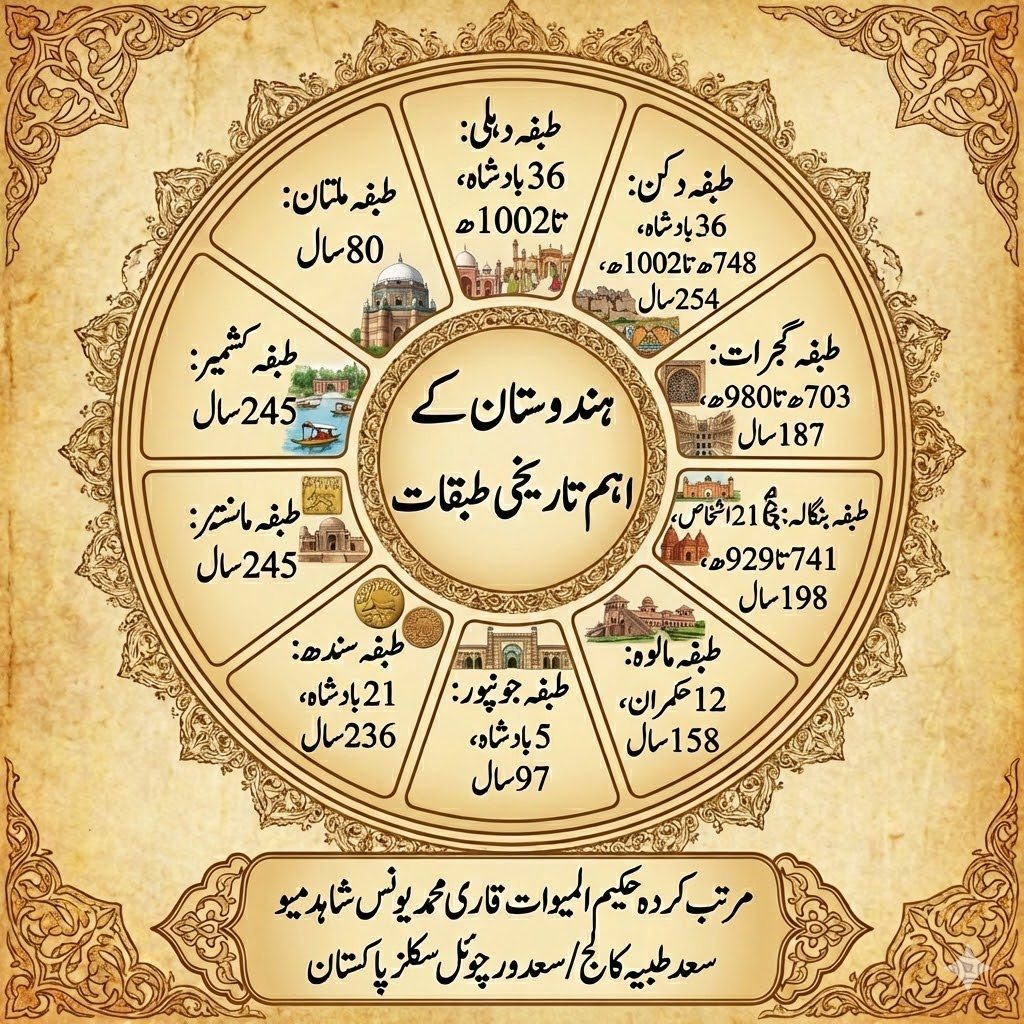 ہندوستان کے
اہم تاریخی طبقات
طبفہ دہلی:
36 بادشاہ،
تا 1002ھ
طبفہ دکن:
36 بادشاہ،
748ھ تا 1002ھ،
254 سال
طبفہ گجرات:
703ھ تا 980ھ،
187 سال
طبفہ بنگالہ: 21 اشخاص،
741 تا 929ھ،
198 سال
طبفہ مالوہ:
12 حکمران،
158 سال
طبفہ جونپور:
5 بادشاہ،
97 سال
طبفہ سندھ:
21 بادشاہ،
236 سال
طبفہ
245 سال
طبفہ کشمیر:
245 سال
طبفہ ملتان:
80 سال
مرتب کردہ حکیم المیوات قاری محمد یونس شاہد میو
سعد طبیہ کالج / سعد ورچوئل سکلز پاکستان